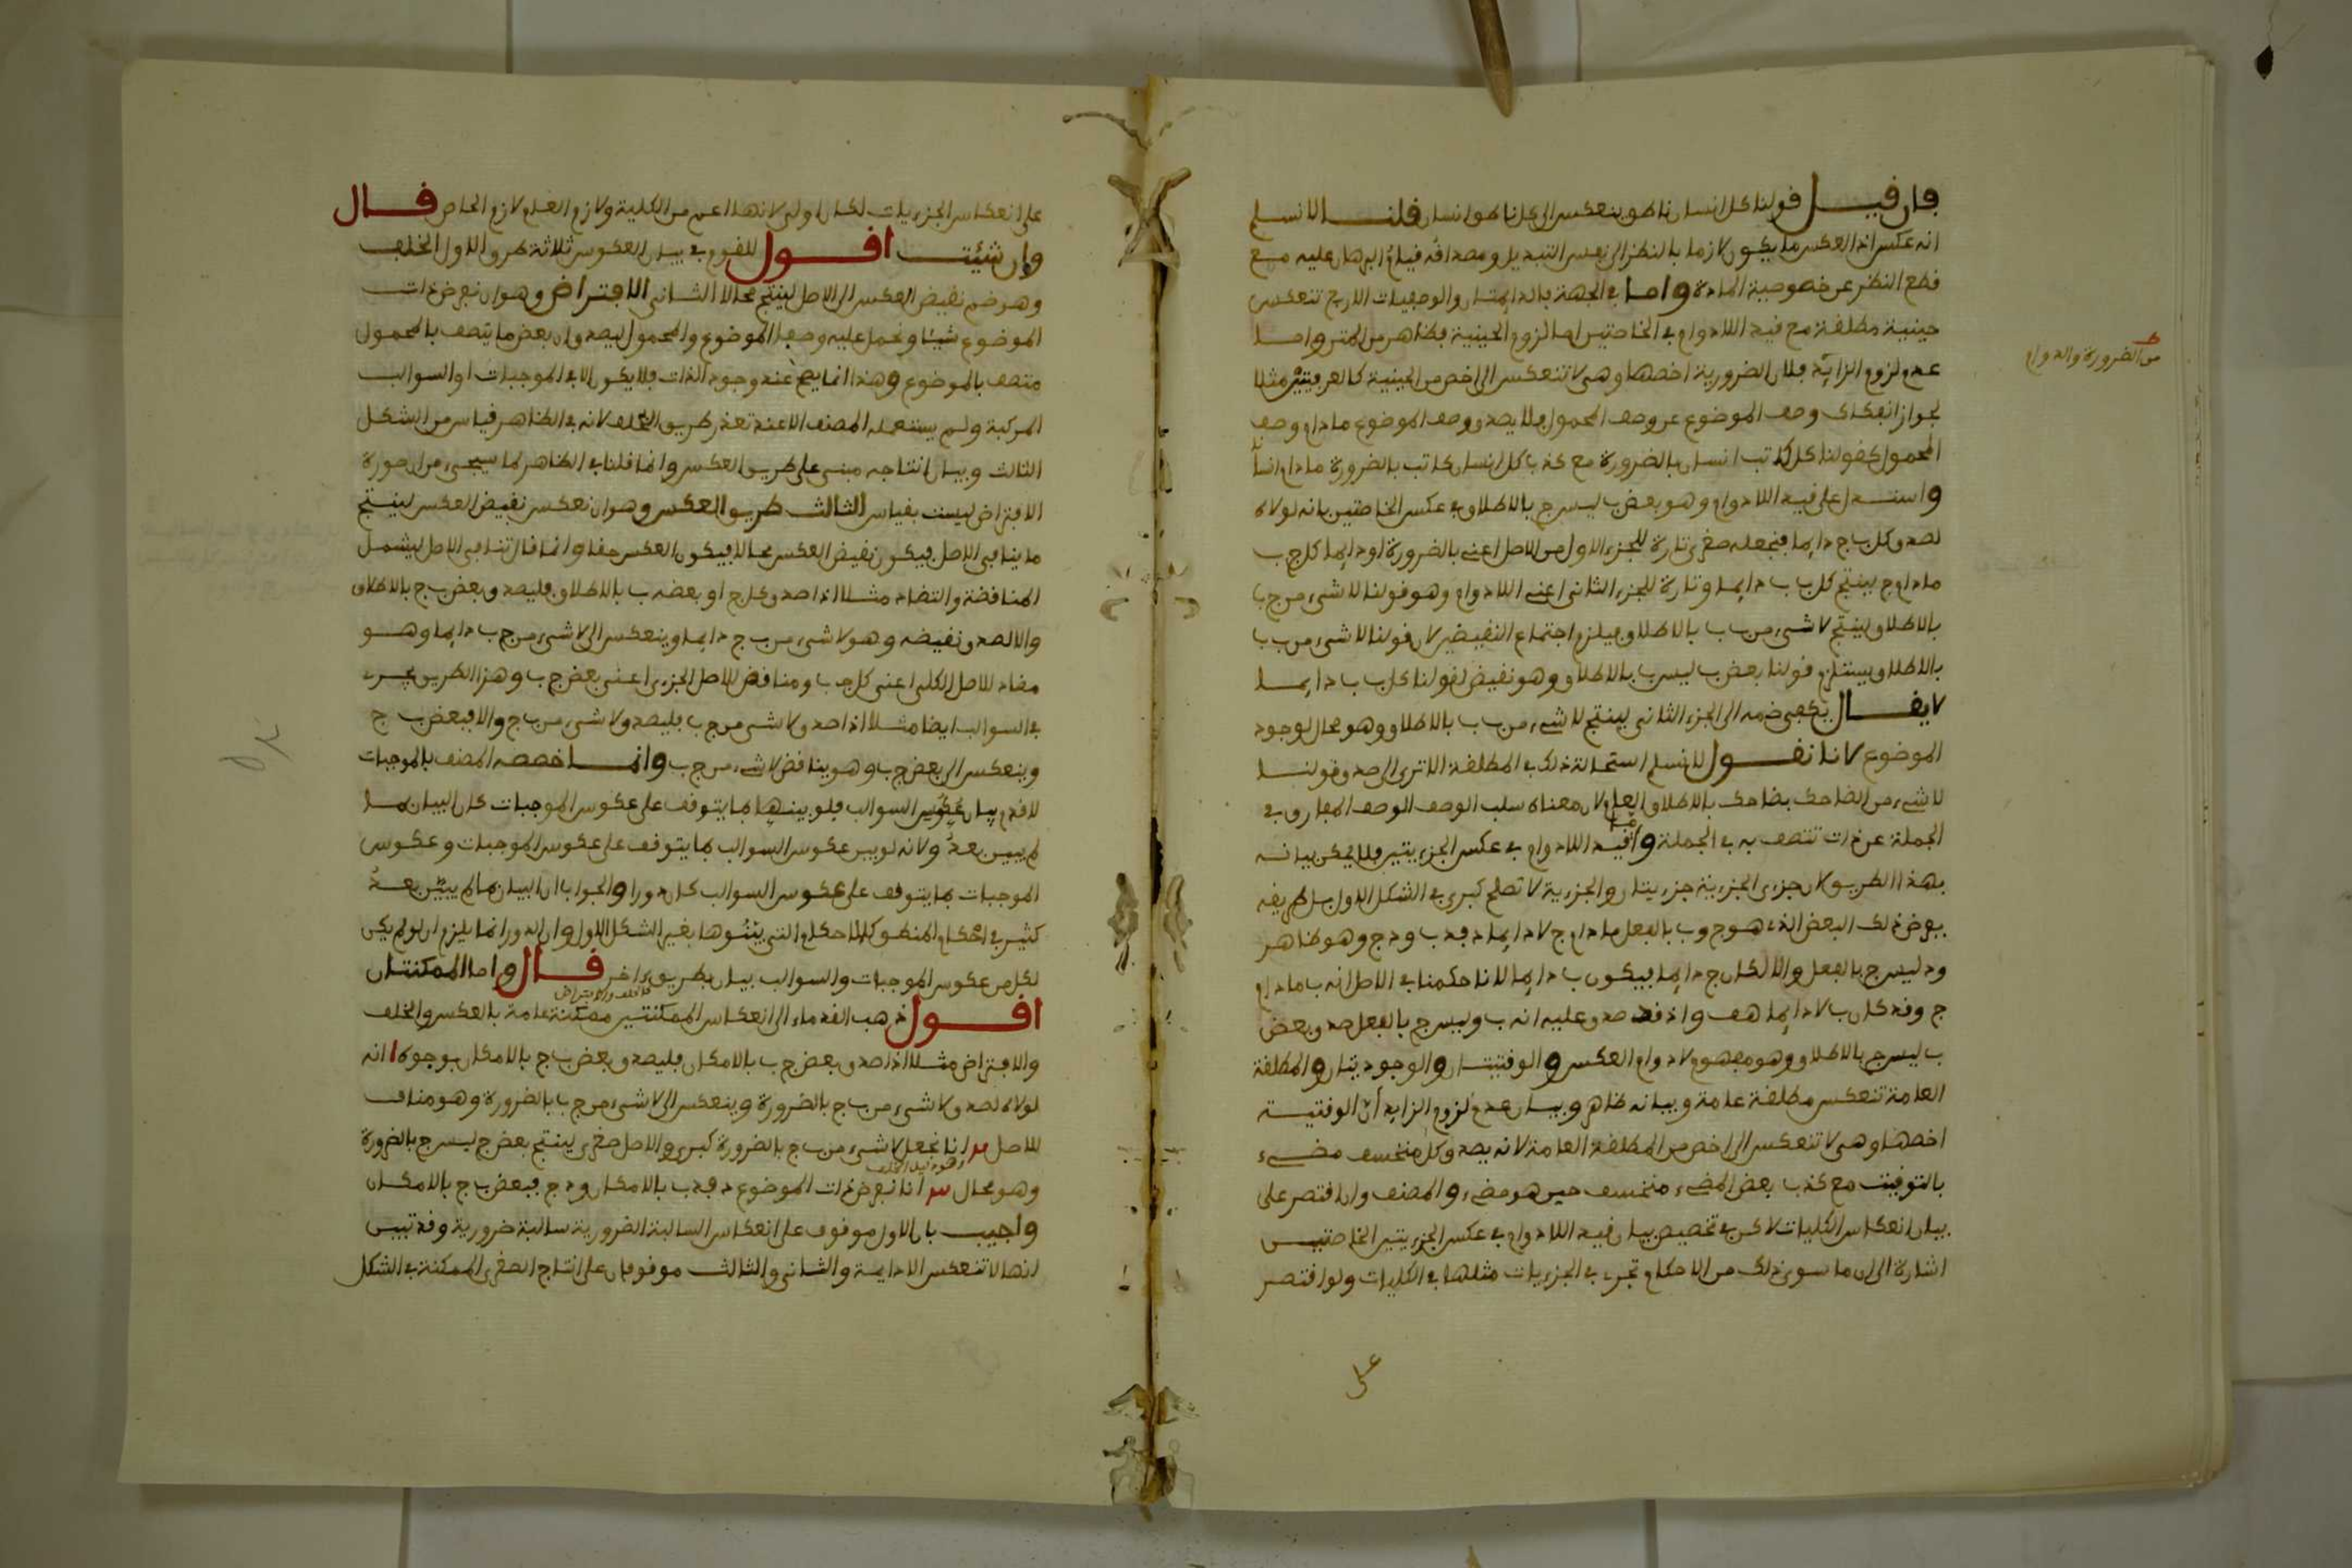 فإن قيل قولنا كل انسان ناطق ينعكس الى كل ناطق انسان قلنا لا نسلم
انه عكس اذ العكس ما يكون لازما بالنظر الى نفس التبديل ومصداقه قيام البرهان عليه مع
قطع النظر عن خصوصية المادة واما في الجهة فالدايمتان والوصفيات الاربع تنعكس
حينية مطلقة مع قيد اللادوام في الخاصتين اما لزوم الحينية فظاهر من المتن واما
عدم لزوم الزايد فلان الضرورية اخصها وهي لا تنعكس الى اخص من الحينية كالعرفيتين مثلا
من الضرورة والدوام
لجواز انفكاك وصف الموضوع عن وصف المحمول فلا يصدق وصف الموضوع ما دام وصف
المحمول كقولنا كل كاتب انسان بالضرورة مع كذب كل انسان كاتب بالضرورة ما دام انسانا
واستدل على قيد اللادوام وهو بعض ب ليس ج بالاطلاق في عكس الخاصتين بانه لولاه
لصدق كل ب ج دايما فنجعله صغرى تارة للجزء الاول من الاصل اعني بالضرورة او دايما كل ج ب
ما دام ج ينتج كل ب ب دايما وتارة للجزء الثاني اعني اللادوام وهو قولنا لا شيء من ج ب
بالاطلاق لينتج لا شيء من ب ب بالاطلاق فيلزم اجتماع النقيضين لان قولنا لا شيء من ب ب
بالاطلاق يستلزم قولنا بعض ب ليس ب بالاطلاق وهو نقيض لقولنا كل ب ب دايما
لا يقال يكفي ضمه الى الجزء الثاني لينتج لا شيء من ب ب بالاطلاق وهو محال لوجود
الموضوع لانا نقول لا نسلم استحالة ذلك في المطلقة الا ترى الى صدق قولنا
لا شيء من الضاحك بضاحك بالاطلاق العام لان معناه سلب الوصف الوصف المفارق في
الجملة عن ذات تتصف به في الجملة واما قيد اللادوام في عكس الجزءيتين فلا يمكن بيانه
بهذا الطريق لان جزءي الجزءية جزءيتان والجزءية لا تصلح كبرى في الشكل الاول بل طريقه
بفرض ذلك البعض الذي هو ج وب بالفعل ما دام ج لا دايما د فد ب ود ج وهو ظاهر
ود ليس ج بالفعل والا لكان ج دايما فيكون ب دايما لانا حكمنا في الاصل انه ب ما دام
ج وقد كان ب لا دايما هف واذ قد صدق عليه انه ب وليس ج بالفعل صدق بعض
ب ليس ج بالاطلاق وهو مفهوم لا دوام العكس والوقتيتان والوجوديتان والمطلقة
العامة تنعكس مطلقة عامة وبيانه ظاهر وبيان عدم لزوم الزايد أن الوقتية
اخصها وهي لا تنعكس الى اخص من المطلقة العامة لانه يصدق كل منخسف مضيء
بالتوقيت مع كذب بعض المضيء منخسف حين هو مضيء والمصنف وان اقتصر على
بيان انعكاس الكليات لاكن في تخصيص بيان قيد اللادوام في عكس الجزءيتين الخاصتين
اشارة الى ان ما سوى ذلك من الاحكام تجري في الجزءيات مثلها في الكليات ولو اقتصر
على
على انعكاس الجزءيات لكان اولى لانها اعم من الكلية ولازم العام لازم الخاص قال
وان شئت اقول للقوم في بيان العكوس ثلاثة طرق الاول الخلف
وهو ضم نقيض العكس الى الاصل لينتج محالا الثاني الافتراض وهو ان نفرض ذات
الموضوع شيئا ونحمل عليه وصف الموضوع والمحمول ليصدق ان بعض ما يتصف بالمحمول
متصف بالموضوع وهذا انما يصح عند وجود الذات فلا يكون الا في الموجبات او السوالب
المركبة ولم يستعمله المصنف الا عند تعذر طريق الخلف لانه في الظاهر قياس من الشكل
الثالث وبيان انتاجه مبني على طريق العكس وانما قلنا في الظاهر لما سيجيء من ان صورة
الافتراض ليست بقياس الثالث طريق العكس وهو ان نعكس نقيض العكس لينتج
ما ينافي الاصل فيكون نقيض العكس محالا فيكون العكس حقا وانما قال تنافي الاصل ليشمل
المناقضة والتضاد مثلا اذا صدق كل ج او بعضه ب بالاطلاق فليصدق بعض ب ج بالاطلاق
والا لصدق نقيضه وهو لا شيء من ب ج دايما وينعكس الى لا شيء من ج ب دايما وهو
مضاد للاصل الكلي اعني كل ج ب ومناقض للاصل الجزءي اعني بعض ج ب وهذا الطريق يجري
في السوالب ايضا مثلا اذا صدق لا شيء من ج ب فليصدق لا شيء من ب ج والا فبعض ب ج
وينعكس الى بعض ج ب وهو يناقض لا شيء من ج ب وانما خصصه المصنف بالموجبات
لانه قدم بيان عكوس السوالب فلو بينها بما يتوقف على عكوس الموجبات كان البيان بما
لم يبين بعد ولانه لو بين عكوس السوالب بما يتوقف على عكوس الموجبات وعكوس
الموجبات بما يتوقف على عكوس السوالب كان دورا والجواب ان البيان بما لم يبين بعد
كثير في احكام المنطق كالاحكام التي بينوها بغير الشكل الاول وان الدور انما يلزم ان لو لم يكن
لكل من عكوس الموجبات والسوالب بيان بطريق ءاخر قال واما الممكنتان
كالخلف والافتراض
اقول ذهب القدماء الى انعكاس الممكنتين ممكنة عامة بالعكس والخلف
والافتراض مثلا اذا صدق بعض ج ب بالامكان فليصدق بعض ب ج بالامكان بوجوه ا انه
لولاه لصدق لا شيء من ب ج بالضرورة وينعكس الى لا شيء من ج ب بالضرورة وهو مناف
للاصل انا نجعل لا شيء من ب ج بالضرورة كبرى والاصل صغرى لينتج بعض ج ليس ج بالضرورة
وهو محال انا نفرض ذات الموضوع د فد ب بالامكان ود ج فبعض ب ج بالامكان
واجيب بان الاول موقوف على انعكاس السالبة الضرورية سالبة ضرورية وقد تبين
انها لا تنعكس الا دايمة والثاني والثالث موقوفان على انتاج الصغرى الممكنة في الشكل